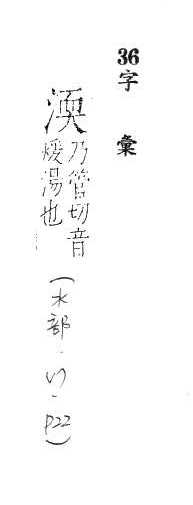 36字彙
渜
乃管切音
煖湯也
(水部.
.P22)